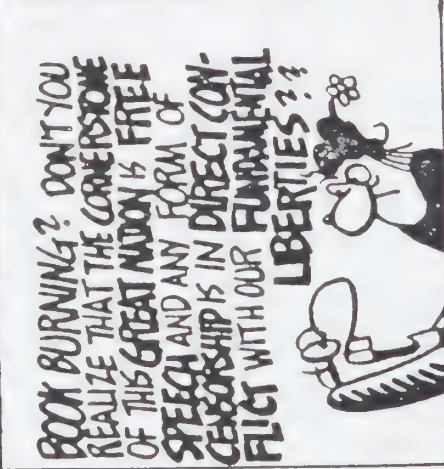 BOOK BURNING? DON'T YOU
REALIZE THAT THE CORNERSTONE
OF THIS GREAT NATION IS FREE
SPEECH AND ANY FORM OF
CENSORSHIP IS IN DIRECT CON-
FLICT WITH OUR FUNDAMENTAL
LIBERTIES??